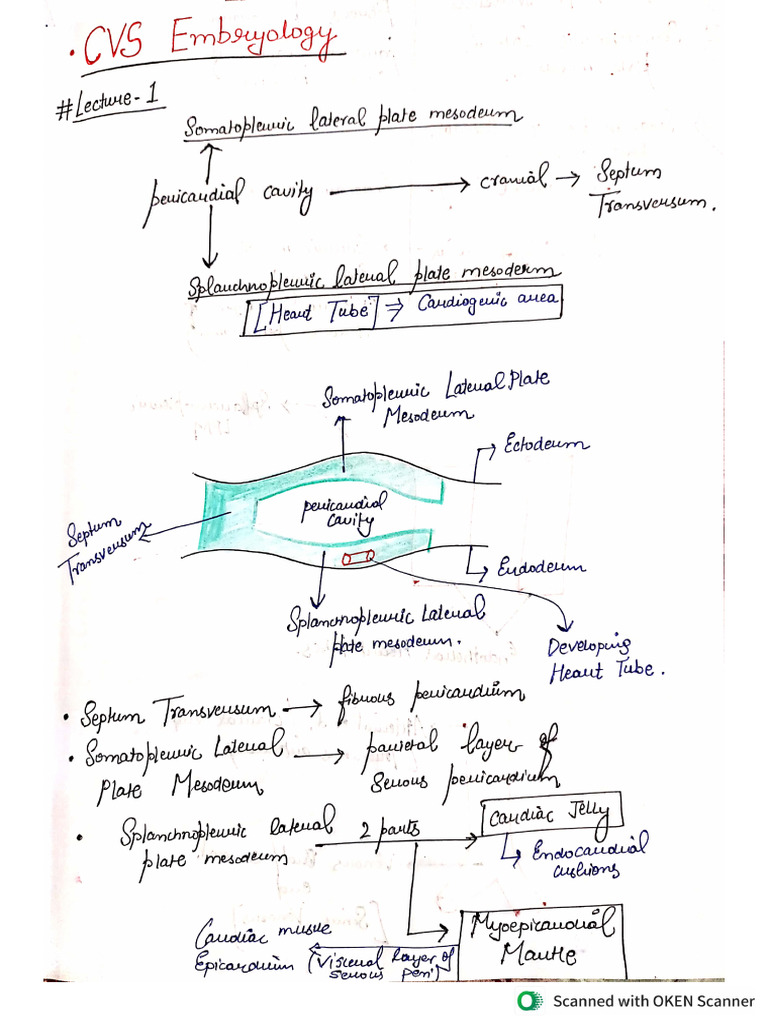 • CVS Embryology
# Lecture - 1
Somatopleuric lateral plate mesoderm
pericardial cavity → cranial → Septum
Transversum.
Splanchnopleuric lateral plate mesoderm
[Heart Tube] ⇒ Cardiogenic area
Somatopleuric Lateral Plate
Mesoderm
Ectoderm
pericardial
cavity
Septum
Transversum
Endoderm
Splanchnopleuric Lateral
plate mesoderm.
Developing
Heart Tube.
• Septum Transversum → fibrous pericardium
• Somatopleuric Lateral → parietal layer of
Plate Mesoderm serous pericardium
• Splanchnopleuric lateral 2 parts → Cardiac Jelly
plate mesoderm
↳ Endocardial
cushions
Myoepicardial
Mantle
Cardiac musle
Epicardium (Visceral layer of
serous peri)
Scanned with OKEN Scanner